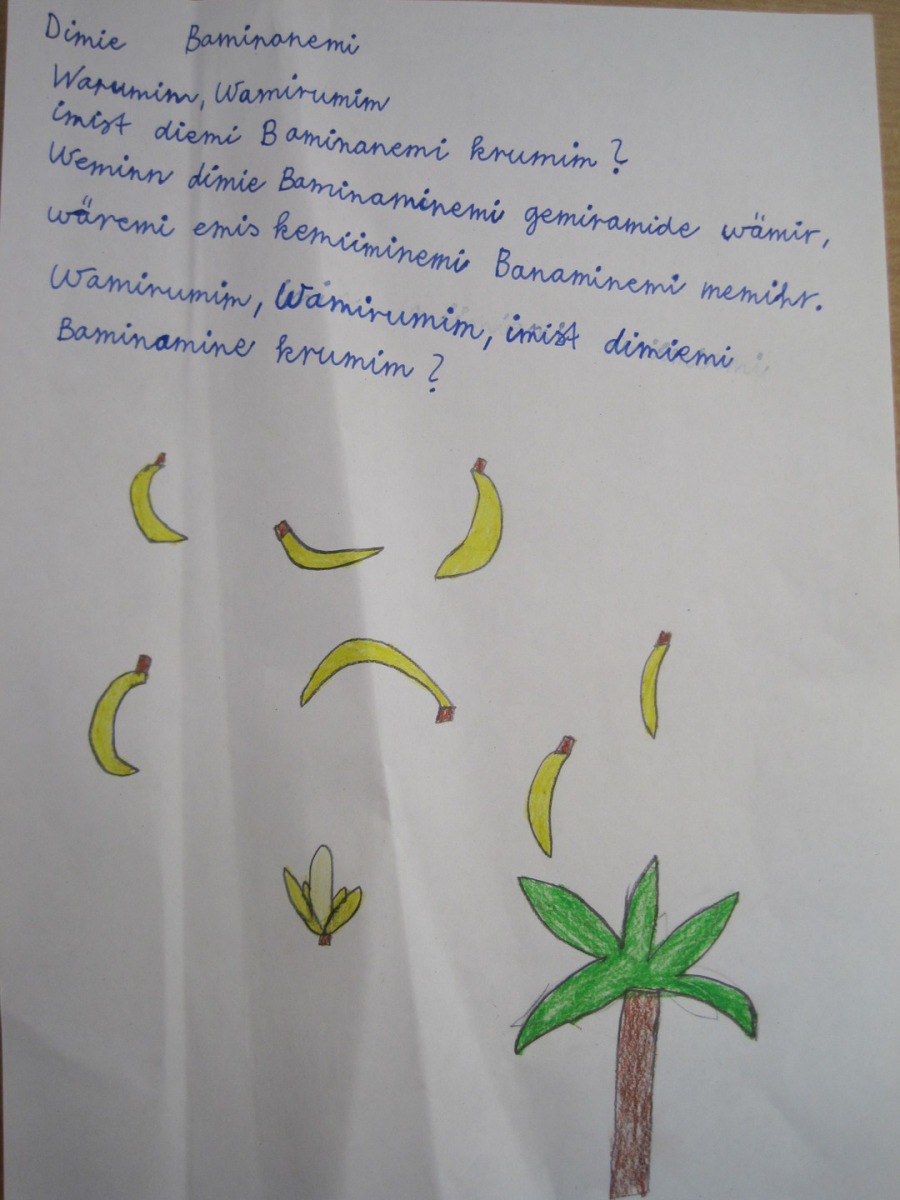 Dimie Baminanemi
Warumim, Wamirumim
imist diemi Baminanemi krumim?
Weminn dimie Baminaminemi gemiramide wämir,
wäremi emis kemiiminemi Banaminemi memihr.
Wamirumim, Wamirumim, imist dimiemi
Baminamine krumim?